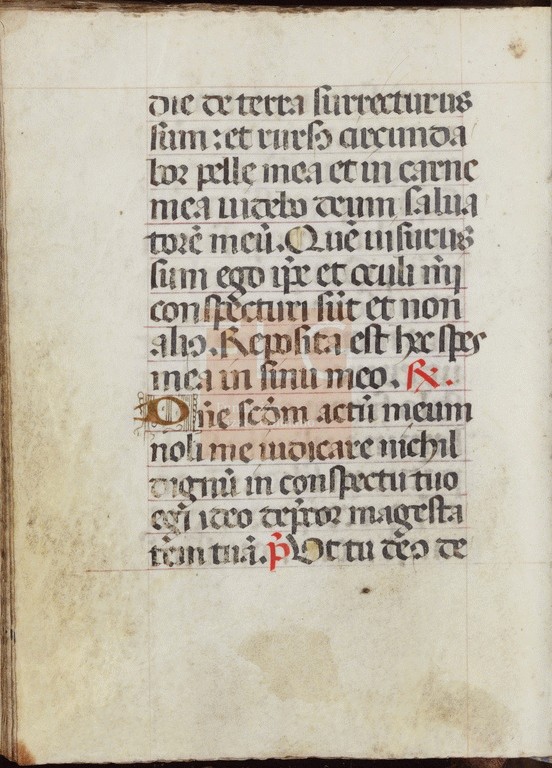 die de terra surrecturus
sum: et rurso circunda
bor pelle mea et in carne
mea uidebo deum salua
torē meū. Quē uisurus
sum ego ip̄e et oculi mi̅j
conspecturi sūt et non
alio. Reposita est hec spes
mea in sinu meo. ℟.
Dn̄e scd̄m actū meum
noli me iudicare nichil
dignū in conspectu tuo
egi ideo dep̄cor magesta
tem tuā. p̄ Vt tu de̅s de